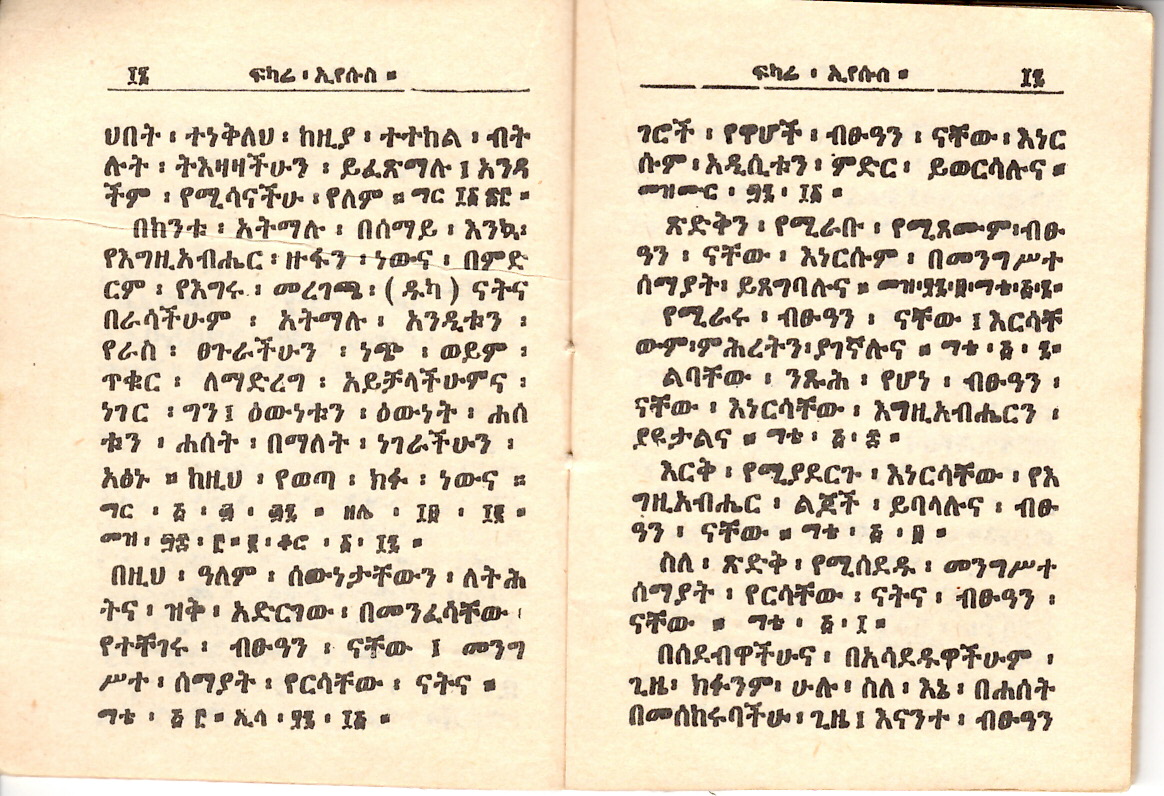 ፲፮ ፍካሬ ፡ ኢየሱስ ።
ሀበት ፡ ተነቅለህ ፡ ከዚያ ፡ ተተከል ፡ ብት
ሉት ፡ ትእዛዛችሁን ፡ ይፈጽማሉ ፤ አንዳ
ችም ፡ የሚሳናችሁ ፡ የለም ። ማር
በከንቱ ፡ አትማሉ ፡ በሰማይ ፡ እንኳ፡
የእግዚአብሔር ፡ ዙፋን ፡ ነውና ፡ በምድ
ርም ፡ የእግሩ ፡ መረገጫ ፡ ( ዱካ ) ናትና
በራሳችሁም ፡ አትማሉ ፡ አንዲቱን ፡
የራስ ፡ ፀጉራችሁን ፡ ነጭ ፡ ወይም ፡
ጥቁር ፡ ለማድረግ ፡ አይቻላችሁምና ፡
ነገር ፡ ግን፤ ዕውነቱን ፡ ዕውነት ፡ ሐሰ
ቱን ፡ ሐሰት ፡ በማለት ፡ ነገራችሁን ፡
አፅኑ ። ከዚህ ፡ የወጣ ፡ ክፉ ፡ ነውና ።
ማር ፡ ፭ ፡ ዘሌ ፡ ፲፱ ፡ ፲፪ ።
መዝ ፡ ቆሮ ፡
በዚህ ፡ ዓለም ፡ ሰውነታቸውን ፡ ለትሕ
ትና ፡ ዝቅ ፡ አድርገው ፡ በመንፈሳቸው ፡
የተቸገሩ ፡ ብፁዓን ፡ ናቸው ፤ መንግ
ሥተ ፡ ሰማያት ፡ የርሳቸው ፡ ናትና ።
ማቴ ፡ ፭ ፫ ። ኢሳ ፡
ፍካሬ ፡ ኢየሱስ ። ፲፯
ገሮች ፡ የዋሆች ፡ ብፁዓን ፡ ናቸው ፡ እነር
ሱም ፡ አዲሲቱን ፡ ምድር ፡ ይወርሳሉና ።
መዝሙር ፡
ጽድቅን ፡ የሚራቡ ፡ የሚጸሙም፡ብፁ
ዓን ፡ ናቸው ፡ እነርሱም ፡ በመንግሥተ
ሰማያት፡ ይጸግባሉና ። መዝ፡ ማቴ፡፭፡፮።
የሚራሩ ፡ ብፁዓን ፡ ናቸው ፤ እርሳቸ
ውም፡ምሕረትን፡ያገኛሉና ። ማቴ ፡ ፭ ፡ ፯።
ልባቸው ፡ ንጹሕ ፡ የሆነ ፡ ብፁዓን ፡
ናቸው ፡ እነርሳቸው ፡ እግዚአብሔርን ፡
ያዩታልና ። ማቴ ፡ ፭ ፡ ፰ ።
እርቅ ፡ የሚያደርጉ ፡ እነርሳቸው ፡ የእ
ግዚአብሔር ፡ ልጆች ፡ ይባላሉና ፡ ብፁ
ዓን ፡ ናቸው ። ማቴ ፡ ፭ ፡ ፱ ።
ስለ ፡ ጽድቅ ፡ የሚሰደዱ ፡ መንግሥተ
ሰማያት ፡ የርሳቸው ፡ ናትና ፡ ብፁዓን ፡
ናቸው ። ማቴ ፡ ፭ ፡ ፲ ።
በሰደብዋችሁና ፡ በአሳደዱዋችሁም ፡
ጊዜ፡ ክፉንም፡ ሁሉ ፡ ስለ ፡ እኔ ፡ በሐሰት
በመሰከሩባችሁ፡ ጊዜ ፤ እናንተ ፡ ብፁዓን